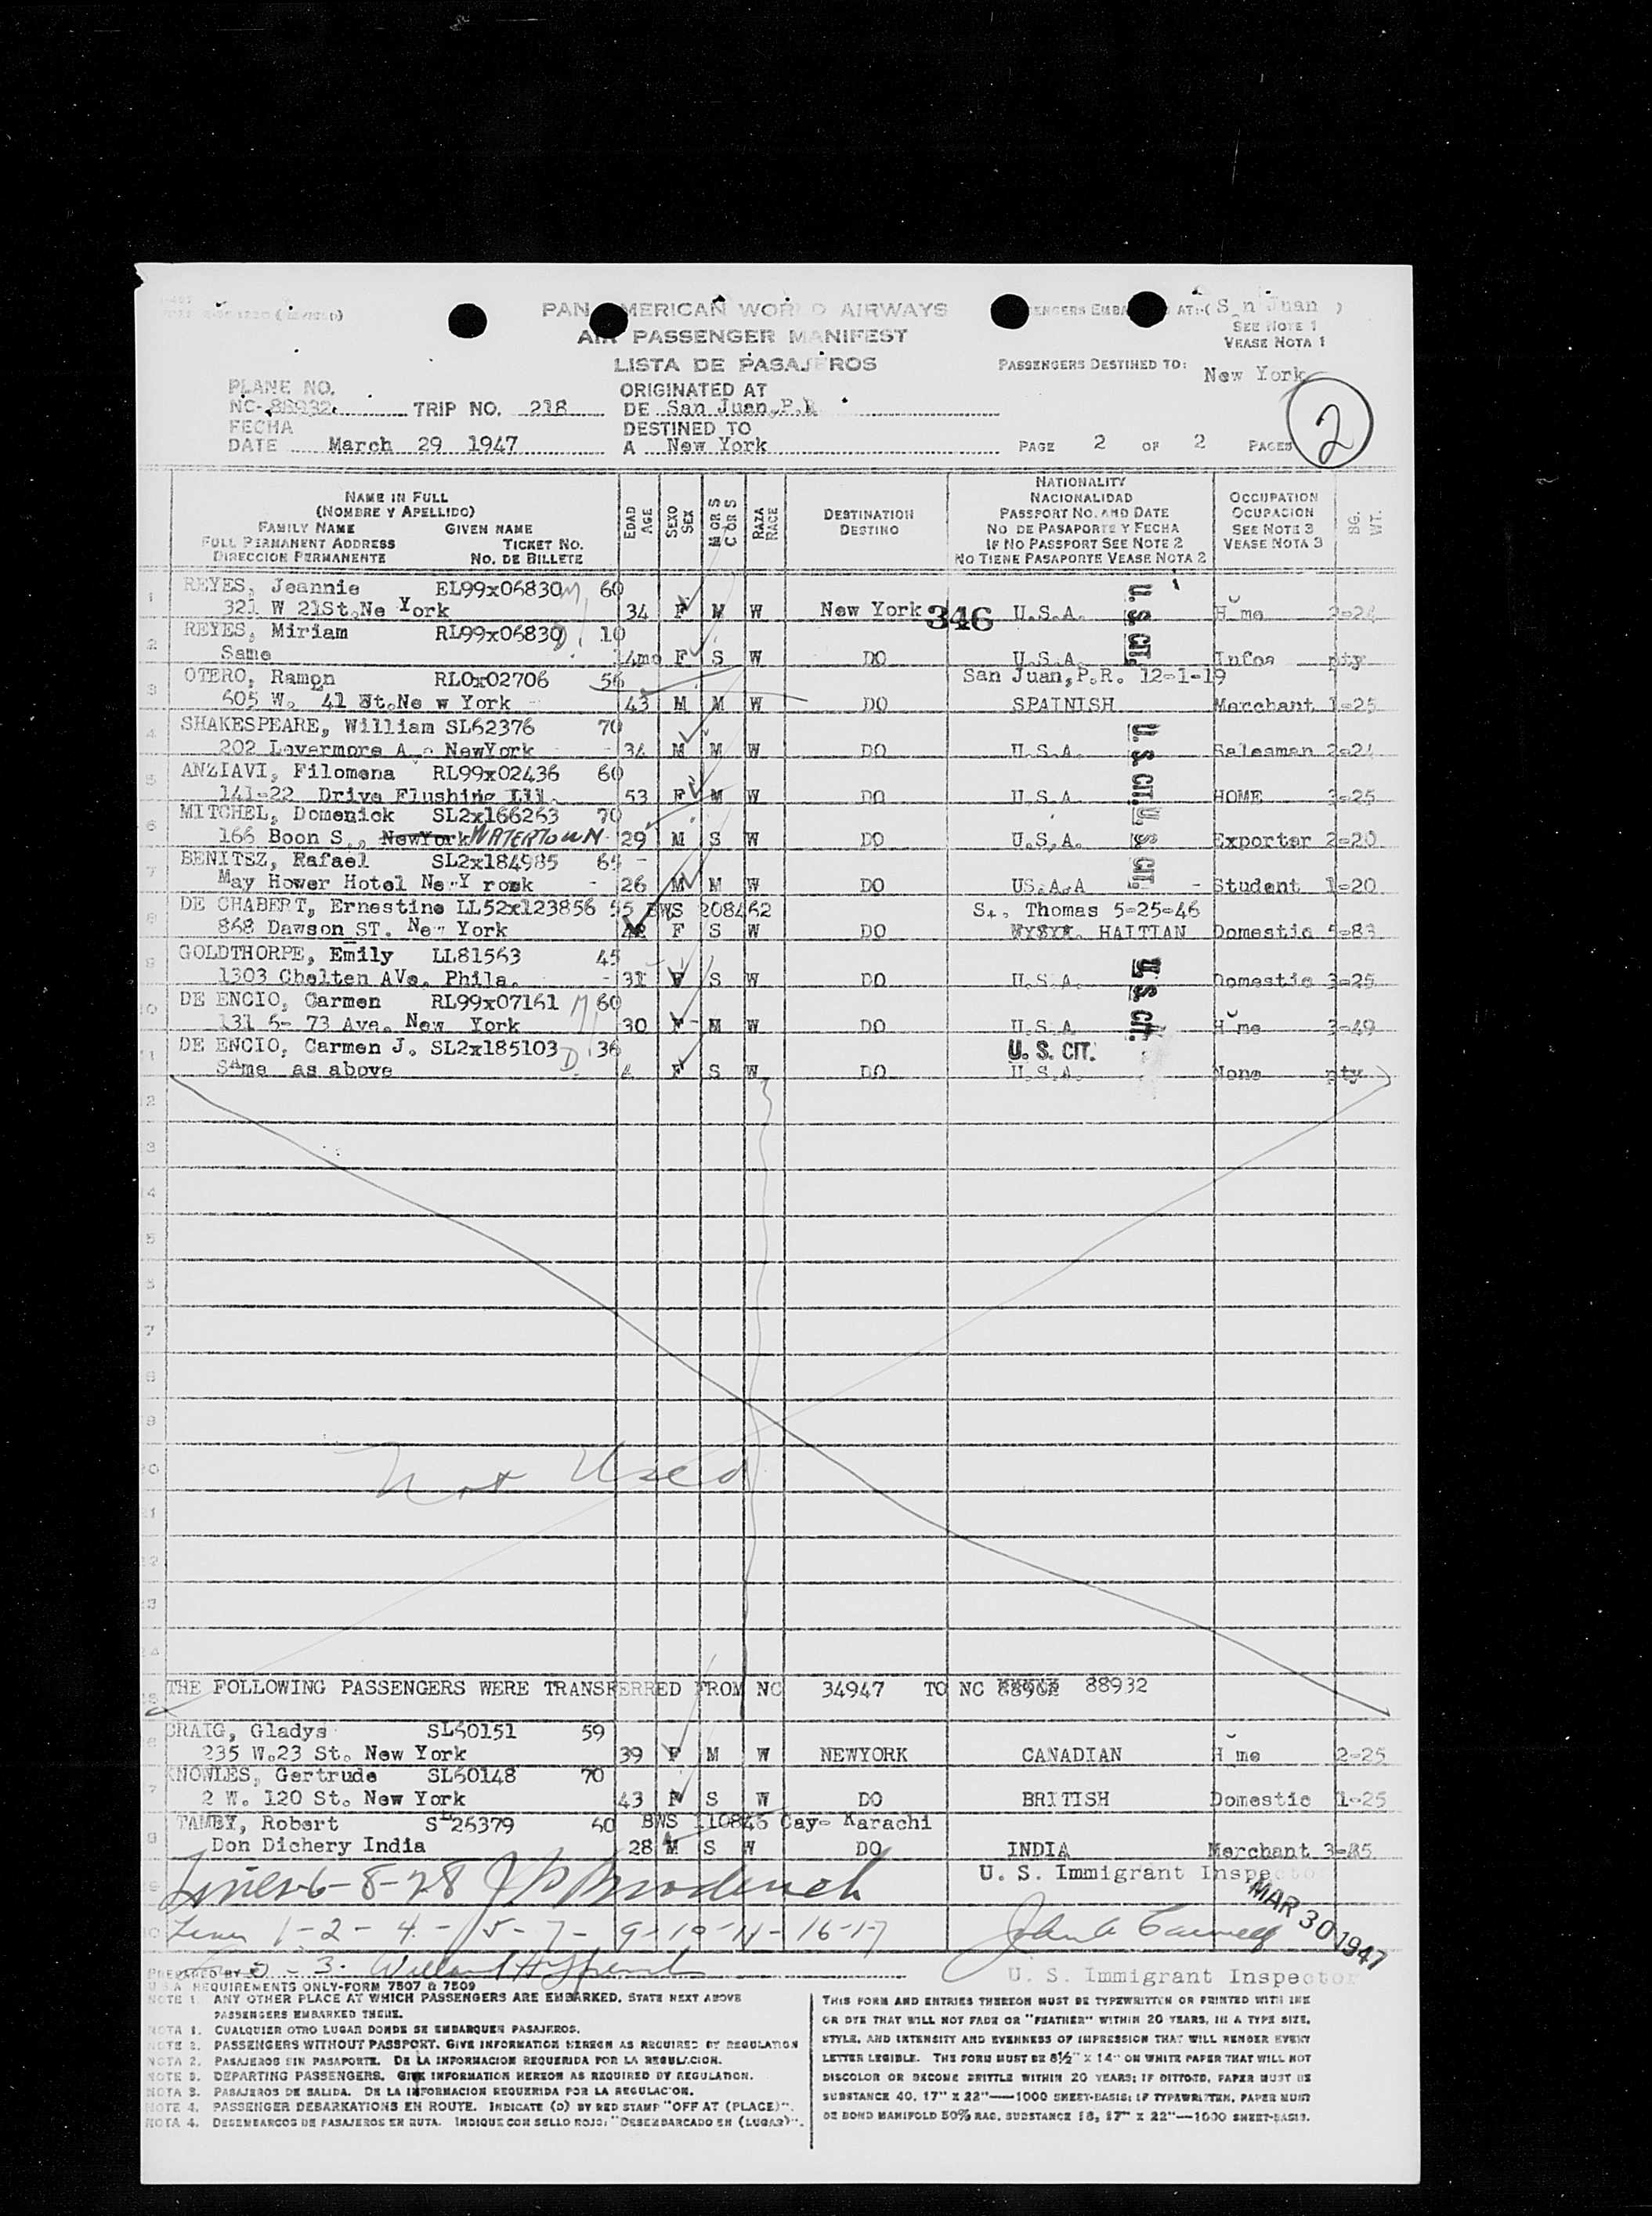 PAN AMERICAN WORLD AIRWAYS
AIR PASSENGER MANIFEST
LISTA DE PASAJEROS
PASSENGERS EMBARKED AT:-( S n Juan )
SEE NOTE 1
VEASE NOTA 1
PASSENGERS DESTINED TO: New York
PLANE NO.
NC-88932 TRIP NO. 218
ORIGINATED AT
DE San Juan,P.R
FECHA
DATE March 29 1947
DESTINED TO
A New York
PAGE 2 OF 2 PAGES
2
NAME IN FULL
(NOMBRE Y APELLIDO)
FAMILY NAME GIVEN NAME
FULL PERMANENT ADDRESS TICKET NO.
DIRECCION PERMANENTE NO. DE BILLETE
EDAD AGE
SEXO SEX
M OR S C OR S
RAZA RACE
DESTINATION
DESTINO
NATIONALITY
NACIONALIDAD
PASSPORT NO. AND DATE
NO DE PASAPORTE Y FECHA
IF NO PASSPORT SEE NOTE 2
NO TIENE PASAPORTE VEASE NOTA 2
OCCUPATION
OCUPACION
SEE NOTE 3
VEASE NOTA 3
BG. WT.
1 REYES, Jeannie EL99x06830 M 60
321 W 21St.Ne York 34 F M W New York 346 U.S.A. U. S. CIT. H me 3-24
2 REYES, Miriam RL99x06830 D. 10
Same 14mo F S W DO U.S.A. Infoa nty
3 OTERO, Ramon RLOx02706 56 San Juan,P.R. 12-1-19
605 W. 41 St.Ne w York 43 M M W DO SPAINISH Merchant 1-25
4 SHAKESPEARE, William SL62376 70
202 Lavermore A NewYork 34 M M W DO U.S.A. U. S. CIT. Salesman 2-24
5 ANZIAVI, Filomena RL99x02436 60
141-22 Drive Flushing 53 F M W DO U.S.A. HOME 3-25
6 MITCHEL, Domenick SL2x166263 70
166 Boon S., NewYork WATERTOWN 29 M S W DO U.S.A. U. S. CIT. Exporter 2-20
7 BENITEZ, Rafael SL2x184985 65 -
May Hower Hotel Ne Y rosk - 26 M M W DO US.A.A - Student 1-20
8 DE CHABERT, Ernestine LL52x123856 55 BWS 208462 St, Thomas 5-25-46
868 Dawson ST. New York 42 F S W DO HAITIAN Domestic 5-83
9 GOLDTHORPE, Emily LL81563 45
1303 Chelten AVe. Phila. - 31 F S W DO U.S.A. U. S. CIT. Domestic 3-25
10 DE ENCIO, Carmen RL99x07161 M 60
131 6- 73 Ave. New York 30 F - M W DO U.S.A H me 3-49
11 DE ENCIO, Carmen J. SL2x185103 D. 36 U. S. CIT.
SAme as above 4 F S W DO U.S.A. None nty
Not Used
THE FOLLOWING PASSENGERS WERE TRANSFERRED FROM NC 34947 TO NC 88902 88932
CRAIG, Gladys SL60151 59
235 W.23 St. New York 39 F M W NEWYORK CANADIAN H me 2-25
KNOWLES, Gertrude SL60148 70
2 W. 120 St. New York 43 F S W DO BRITISH Domestic 1-25
TAMBY, Robert SL26379 60 BWS 110846 Cay- Karachi
Don Dichery India 28 M S W DO INDIA Merchant 3-85
Lines-6-8-28
U. S. Immigrant Inspector
Lines 1-2-4-5-7-9-10-11-16-17
MAR 30 1947
PREPARED BY - 3.
U. S. Immigrant Inspector
U S A REQUIREMENTS ONLY-FORM 7507 & 7509
NOTE 1. ANY OTHER PLACE AT WHICH PASSENGERS ARE EMBARKED, STATE NEXT ABOVE
PASSENGERS EMBARKED THERE.
NOTA 1. CUALQUIER OTRO LUGAR DONDE SE EMBARQUEN PASAJEROS.
NOTE 2. PASSENGERS WITHOUT PASSPORT. GIVE INFORMATION HEREON AS REQUIRED BY REGULATION
NOTA 2. PASAJEROS SIN PASAPORTE. DE LA INFORMACION REQUERIDA POR LA REGULACION.
NOTE 3. DEPARTING PASSENGERS. GIVE INFORMATION HEREON AS REQUIRED BY REGULATION.
NOTA 3. PASAJEROS DE SALIDA. DE LA INFORMACION REQUERIDA POR LA REGULACION.
NOTE 4. PASSENGER DEBARKATIONS EN ROUTE. INDICATE (D) BY RED STAMP "OFF AT (PLACE)".
NOTA 4. DESEMBARCOS DE PASAJEROS EN RUTA. INDIQUE CON SELLO ROJO: "DESEMBARCADO EN (LUGAR)".
THIS FORM AND ENTRIES THEREON MUST BE TYPEWRITTEN OR PRINTED WITH INK
OR DYE THAT WILL NOT FADE OR "FEATHER" WITHIN 20 YEARS, IN A TYPE SIZE,
STYLE, AND INTENSITY AND EVENNESS OF IMPRESSION THAT WILL RENDER EVERY
LETTER LEGIBLE. THE FORM MUST BE 8½" X 14" ON WHITE PAPER THAT WILL NOT
DISCOLOR OR BECOME BRITTLE WITHIN 20 YEARS; IF DITTOED, PAPER MUST BE
SUBSTANCE 40, 17" X 22"—1000 SHEET-BASIS; IF TYPEWRITTEN, PAPER MUST
BE BOND MANIFOLD 50% RAG, SUBSTANCE 16, 17" X 22"—1000 SHEET-BASIS.